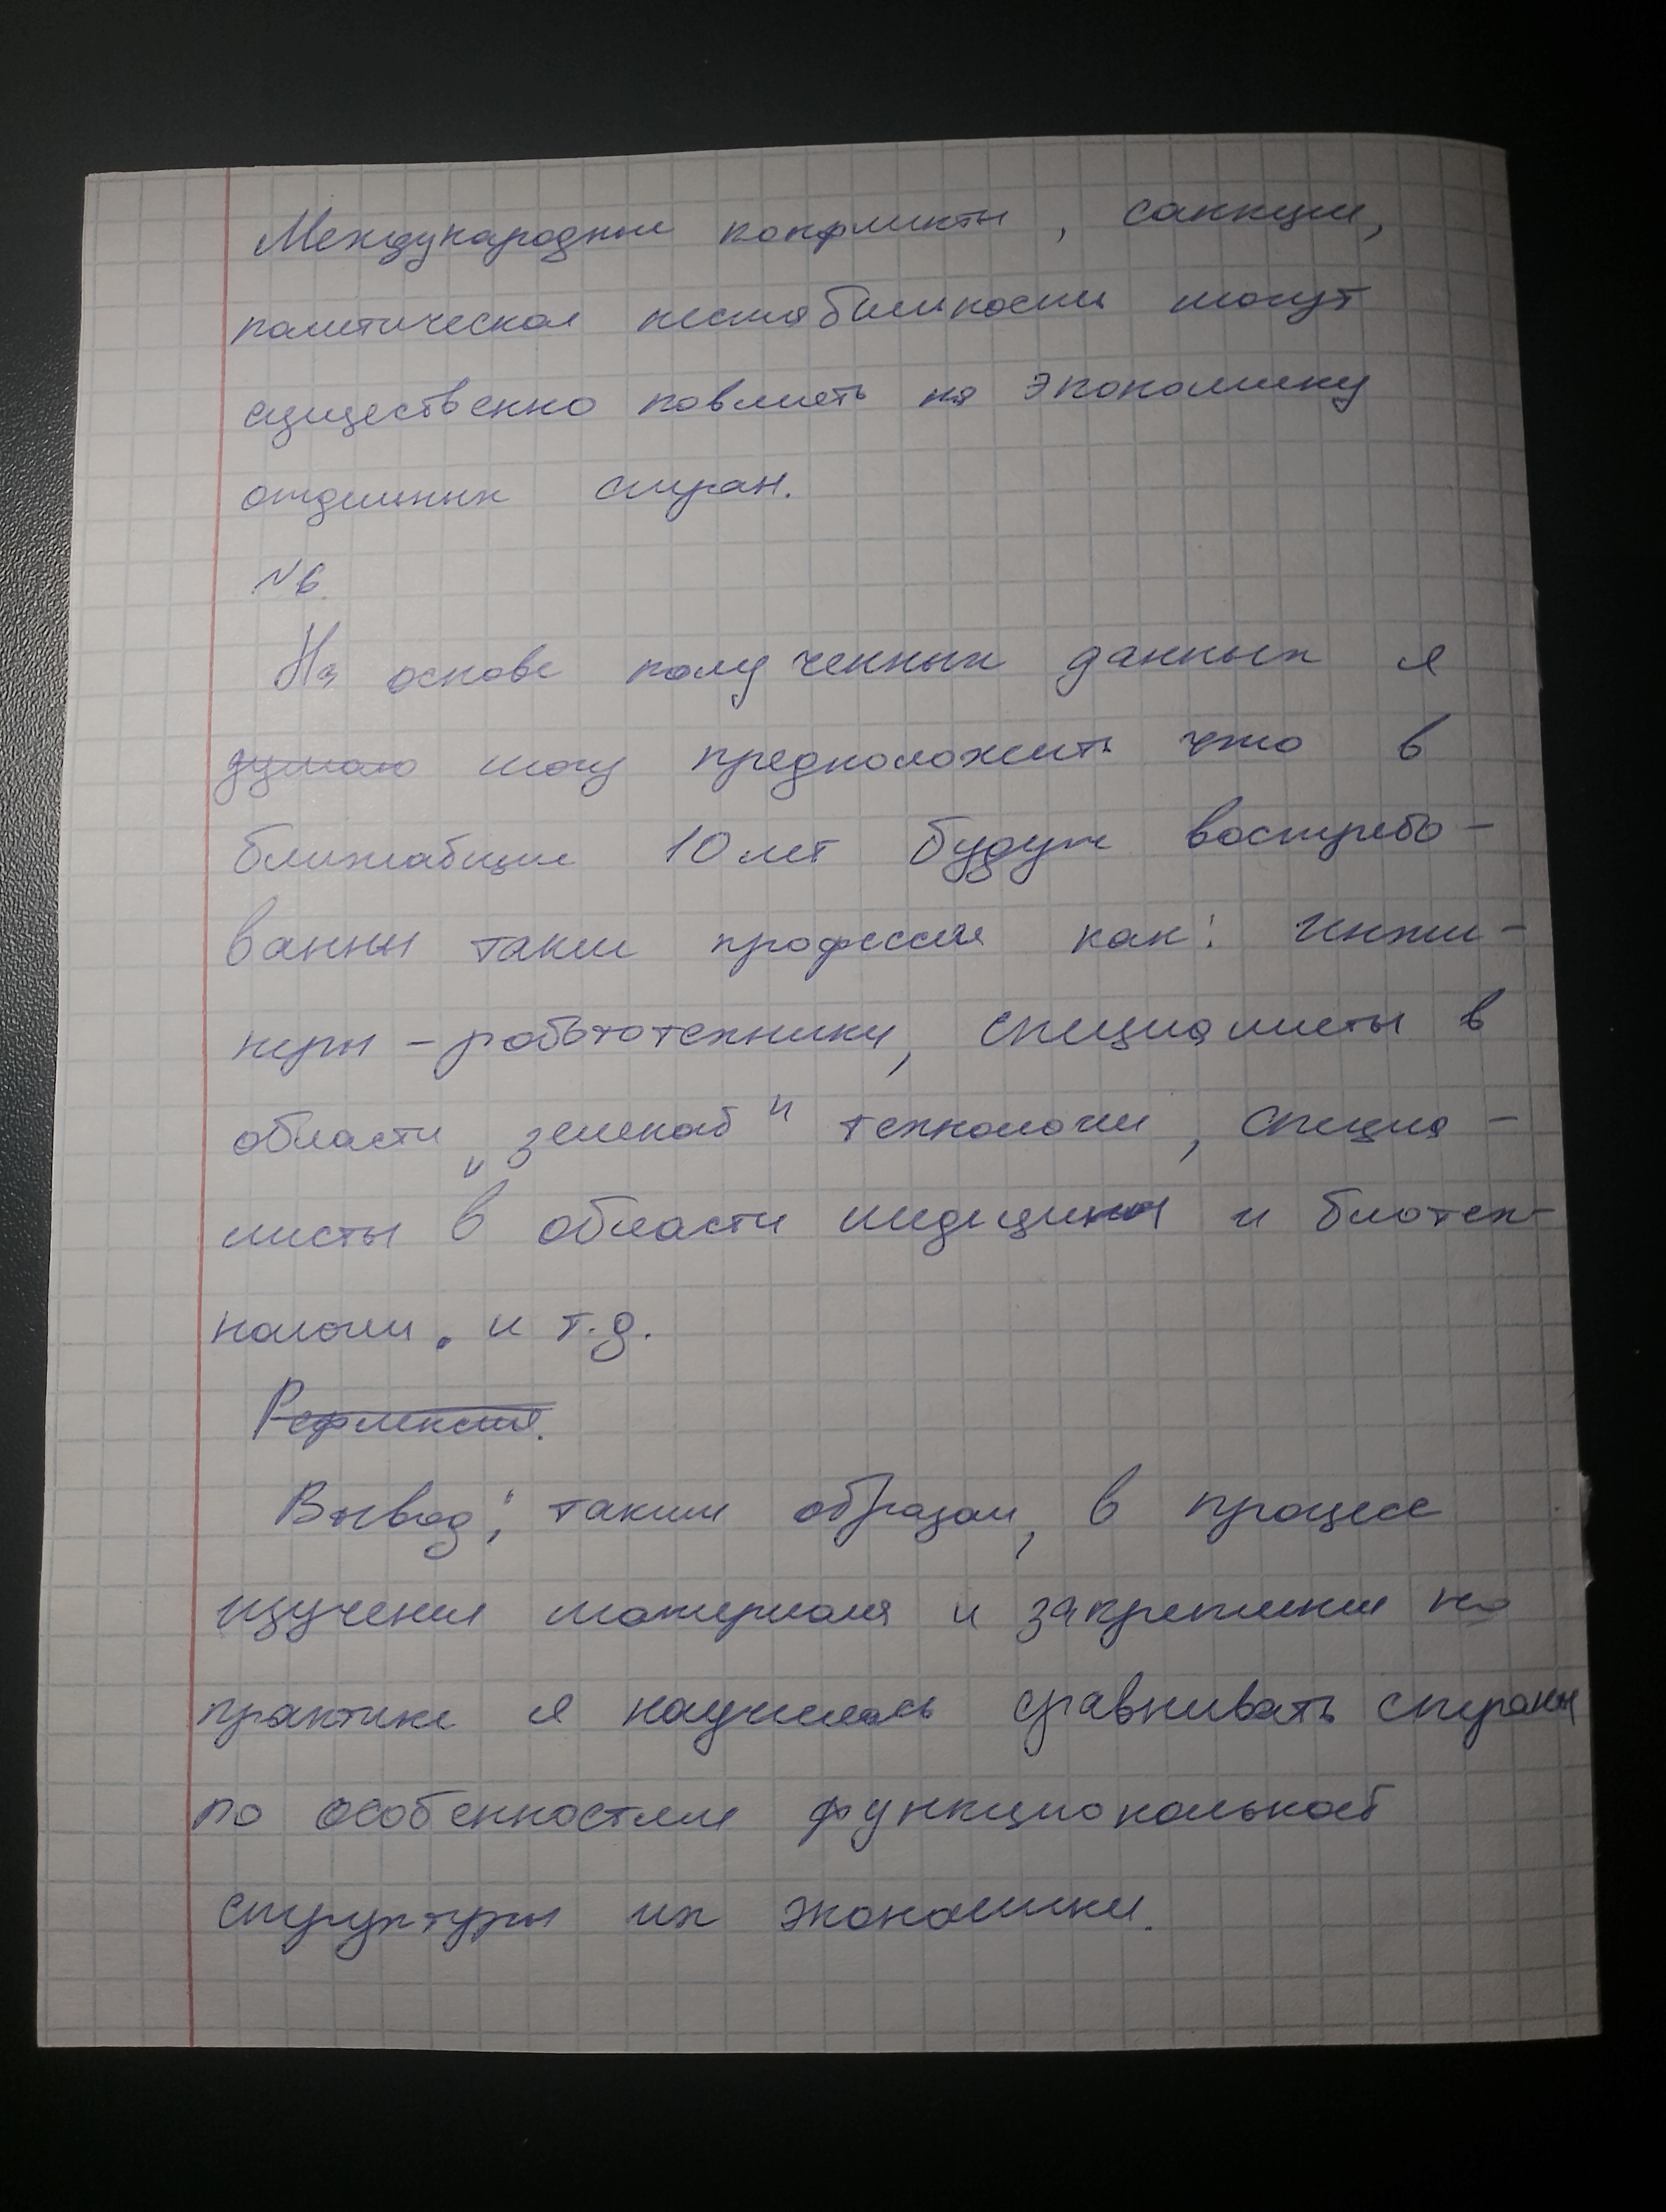 Международные конфликты, санкции,
политическая нестабильности могут
существенно повлиять на экономику
отдельных стран.
№6.
На основе полученных данных я
думаю могу предположить что в
ближайщие 10 лет будут востребо-
ванны такие профессии как: инжи-
неры - робототехники, специалисты в
области „зеленой" технологии, специа-
листы в области медицины и биотех-
нологии. и т.д.
Рефлексия.
Вывод: таким образом, в процессе
изучения материала и закрепления на
практике я научилась сравнивать страны
по особенностям функциональной
структуры их экономики.